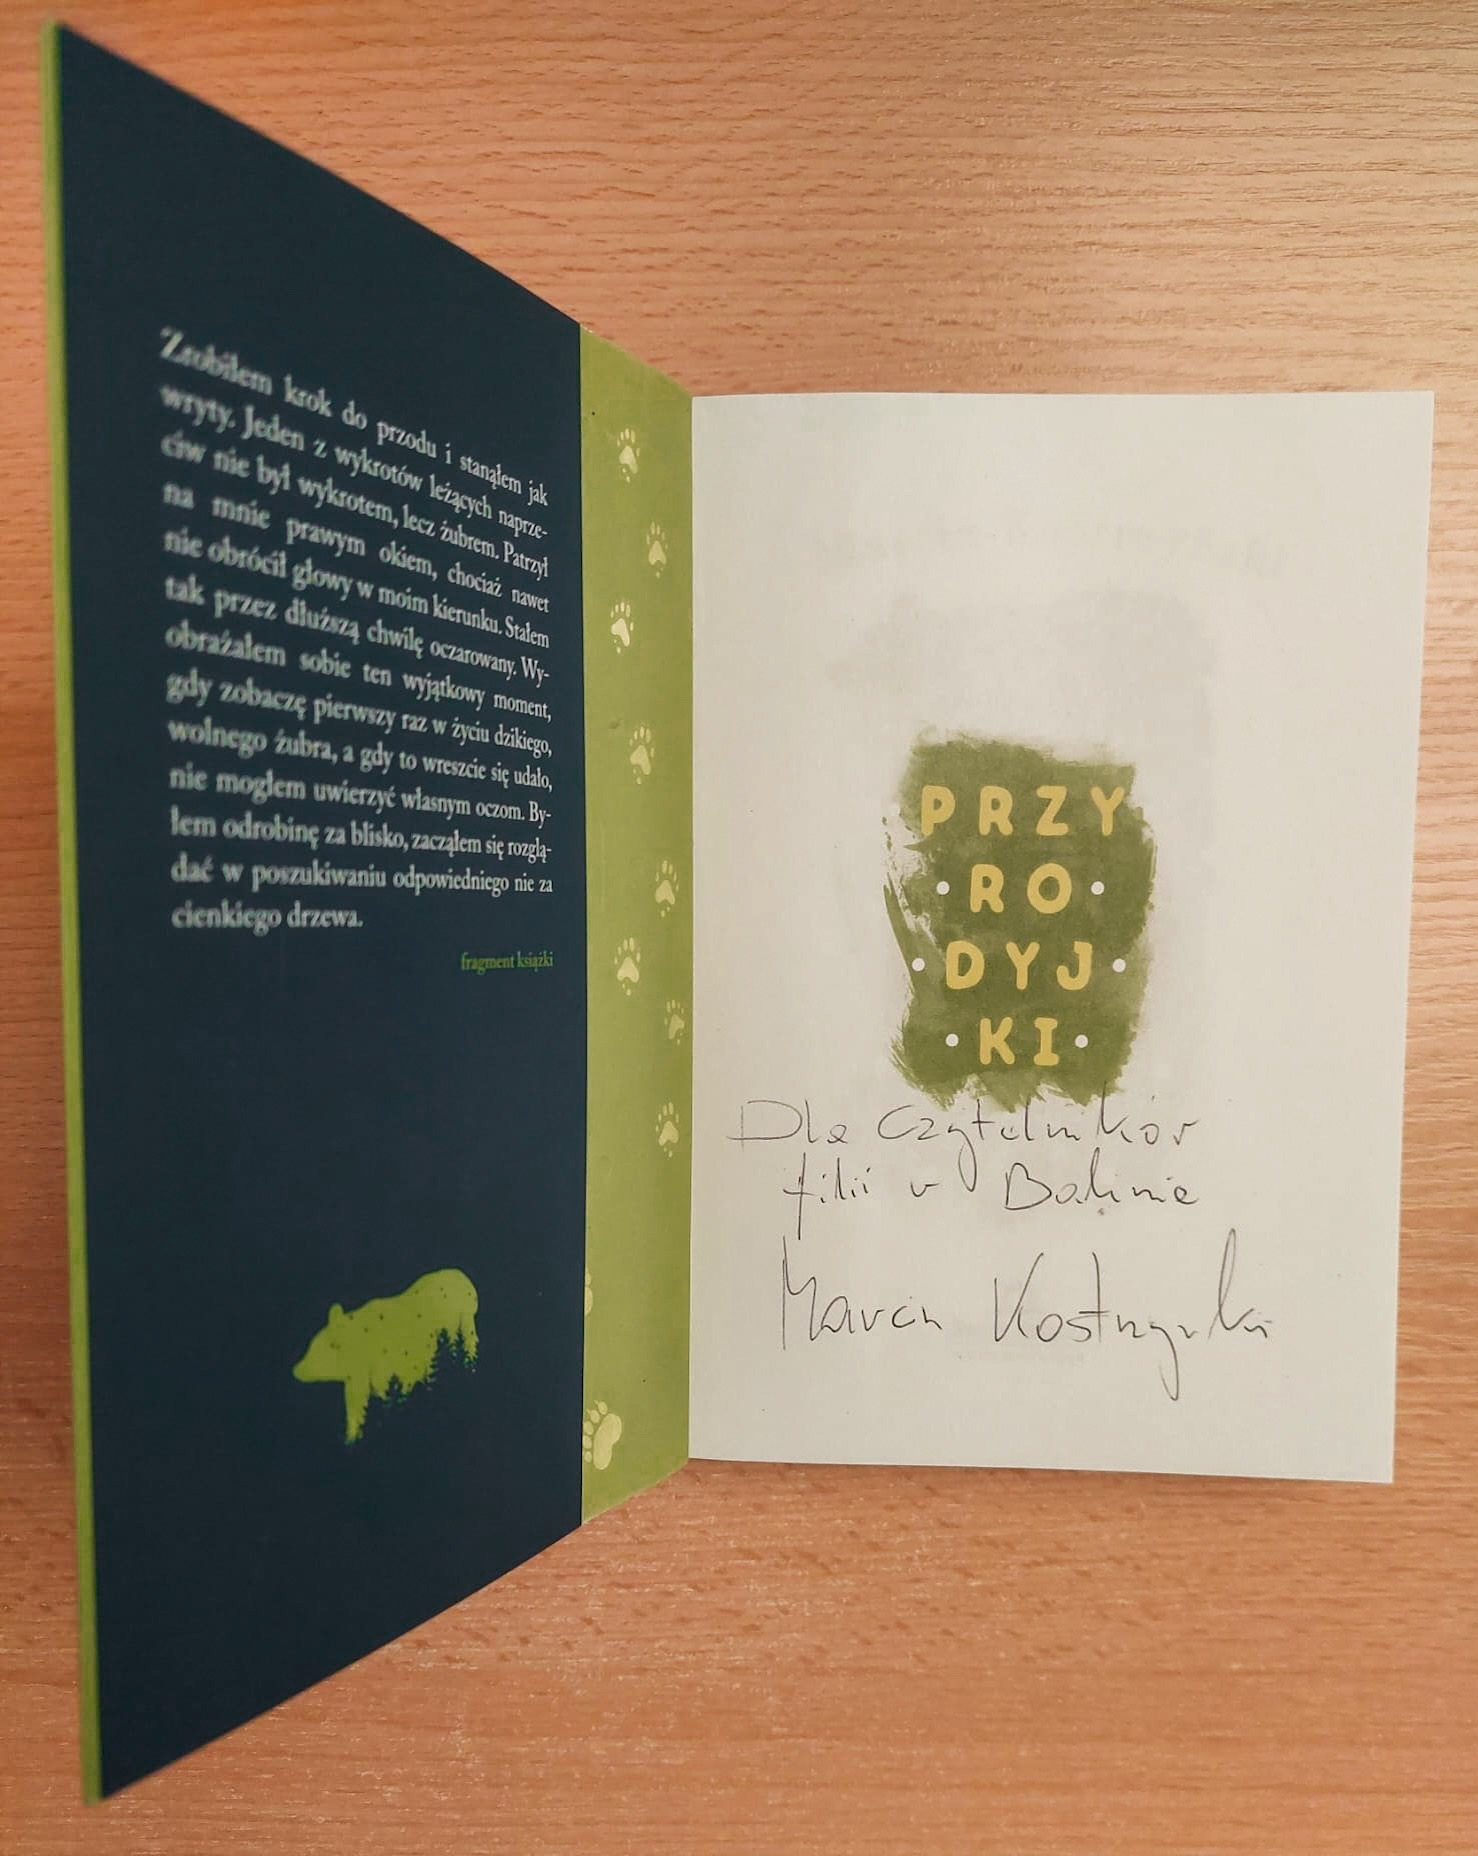 Zrobiłem krok do przodu i stanąłem jak
wryty. Jeden z wykrotów leżących naprze-
ciw nie był wykrotem, lecz żubrem. Patrzył
na mnie prawym okiem, chociaż nawet
nie obrócił głowy w moim kierunku. Stałem
tak przez dłuższą chwilę oczarowany. Wy-
obrażałem sobie ten wyjątkowy moment,
gdy zobaczę pierwszy raz w życiu dzikiego,
wolnego żubra, a gdy to wreszcie się udało,
nie mogłem uwierzyć własnym oczom. By-
łem odrobinę za blisko, zacząłem się rozglą-
dać w poszukiwaniu odpowiedniego nie za
cienkiego drzewa.
fragment książki
PRZY
RO
DYJ
KI
Dla Czytelników
filii w Balinie
Marcin Kostrzyński